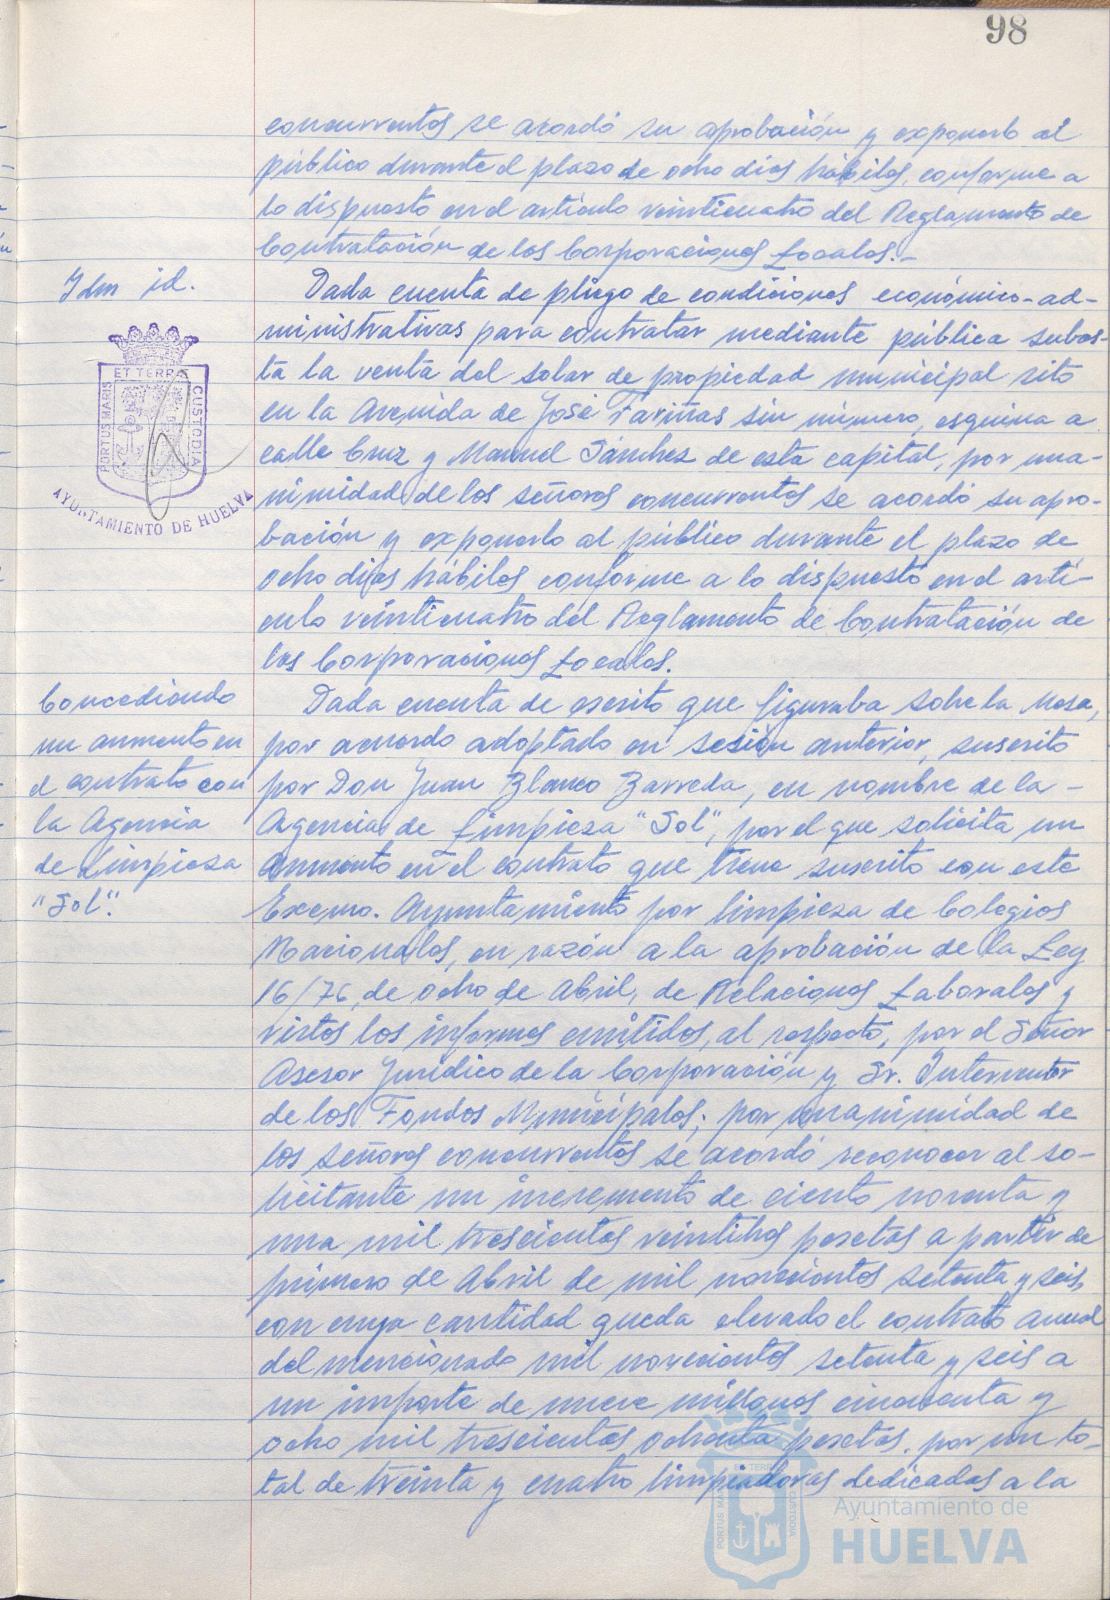 98
concurrentes se acordó su aprobación y exponerlo al
público durante el plazo de ocho días hábiles, conforme a
lo dispuesto en el artículo veinticuatro del Reglamento de
Contratación de las Corporaciones Locales.-
Idem id.
Dada cuenta de pliego de condiciones económico-ad-
ministrativas para contratar mediante pública subas-
ta la venta del solar de propiedad municipal sito
en la Avenida de José Fariñas sin número, esquina a
calle Cruz y Manuel Sánchez de esta capital, por una-
nimidad de los señores concurrentes se acordó su apro-
bación y exponerlo al público durante el plazo de
ocho días hábiles conforme a lo dispuesto en el artí-
culo veinticuatro del Reglamento de Contratación de
las Corporaciones Locales.
ET TERRÆ
PORTUS MARIS
CUSTODIA
AYUNTAMIENTO DE HUELVA
Concediendo
un aumento en
el contrato con
la Agencia
de Limpieza
"Sol".
Dada cuenta de escrito que figuraba sobre la Mesa,
por acuerdo adoptado en sesión anterior, suscrito
por Don Juan Blanco Barreda, en nombre de la -
Agencia de Limpieza "Sol", por el que solicita un
aumento en el contrato que tiene suscrito con este
Excmo. Ayuntamiento por limpieza de Colegios
Nacionales, en razón a la aprobación de la Ley
16/76, de ocho de Abril, de Relaciones Laborales y
vistos los informes emitidos, al respecto, por el Señor
Asesor Jurídico de la Corporación y Sr. Interventor
de los Fondos Municipales; por unanimidad de
los señores concurrentes se acordó reconocer al so-
licitante un incremento de ciento noventa y
una mil trescientas veintitres pesetas a partir de
primero de Abril de mil novecientos setenta y seis,
con cuya cantidad queda elevado el contrato anual
del mencionado mil novecientos setenta y seis a
un importe de nueve millones cincuenta y
ocho mil trescientas ochenta pesetas, por un to-
tal de treinta y cuatro limpiadoras dedicadas a la
ET TERRÆ
PORTUS MARIS
CUSTODIA
Ayuntamiento de
HUELVA